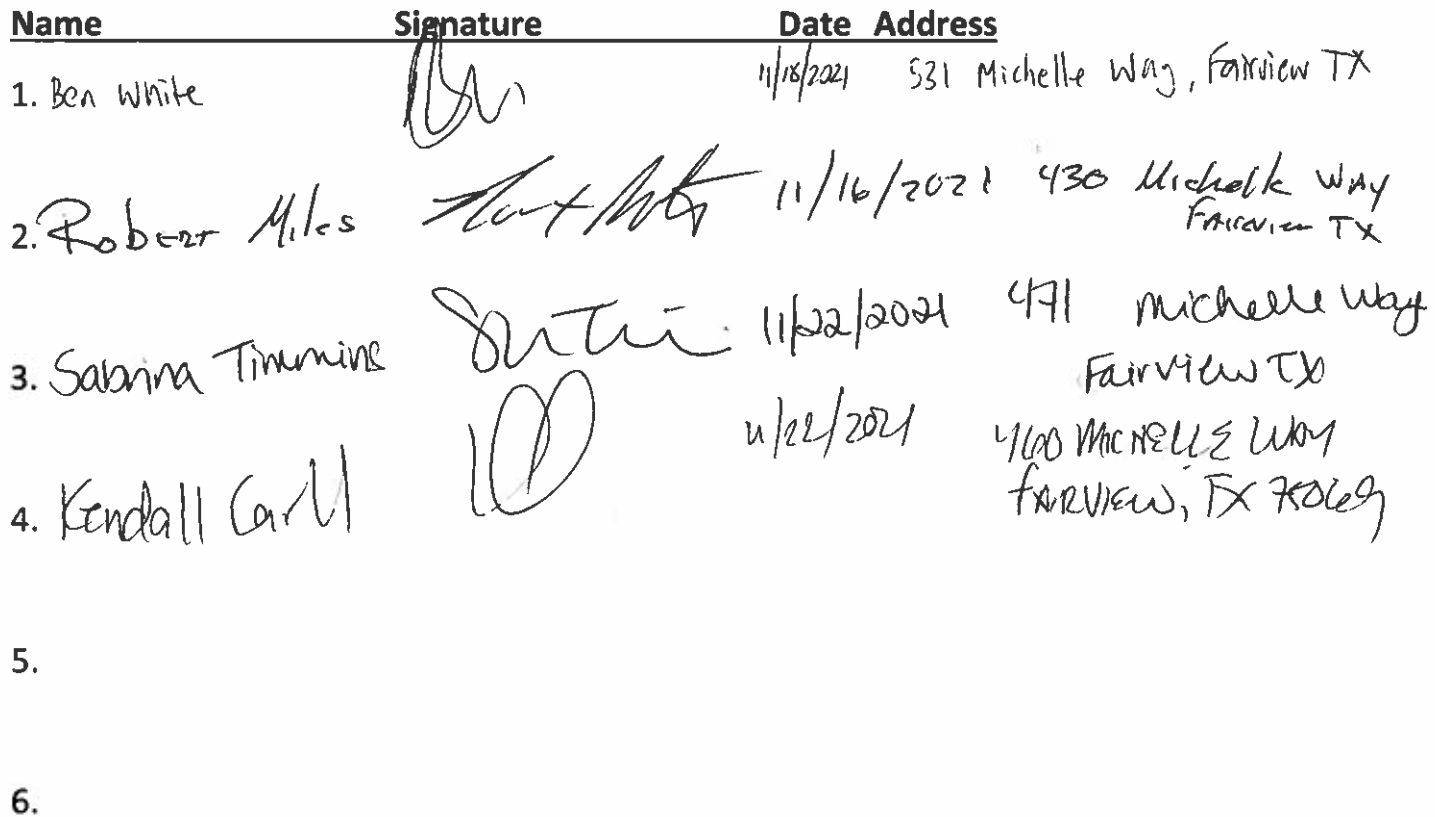 Name Signature Date Address
1. Ben White 11/18/2021 531 Michelle Way, Fairview TX
2. Robert Miles 11/16/2021 430 Michelle Way
Fairview TX
3. Sabrina Timmins 11/22/2021 471 Michelle Way
Fairview TX
4. Kendall Carll 11/22/2021 460 MICHELLE WAY
FAIRVIEW, TX 75069
5.
6.